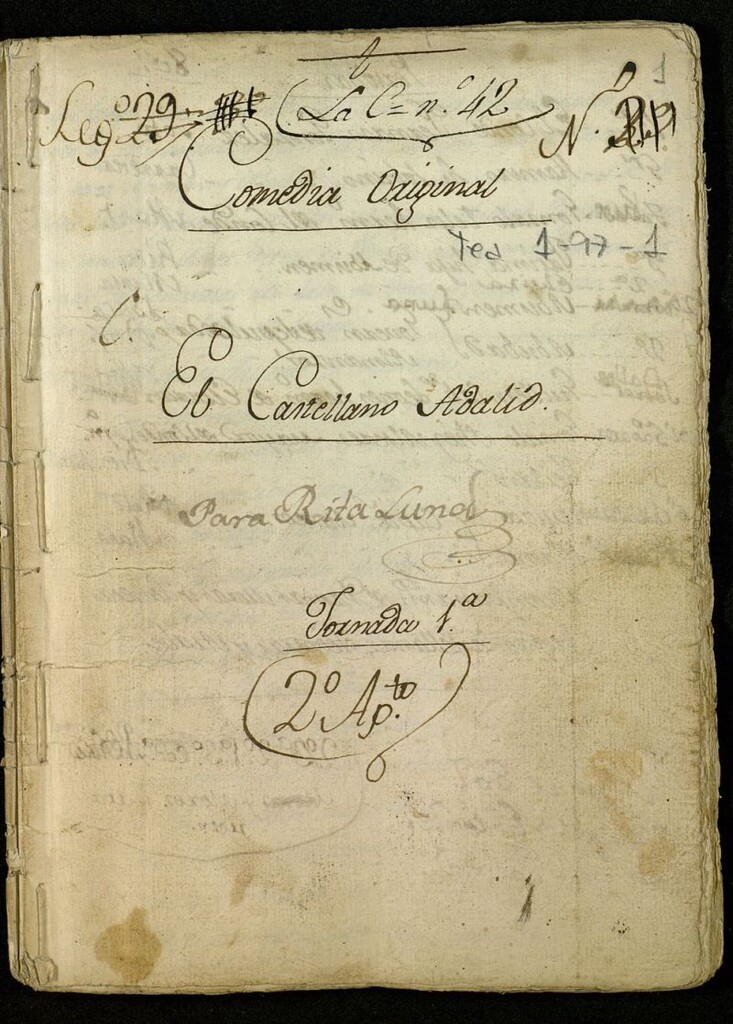 Leg.º 29
La C= n.º 42
N.º
1
Comedia Original
Tea 1-97-1
C.
El Castellano Adalid.
Para Rita Luna
Jornada 1.ª
2º Ap.to